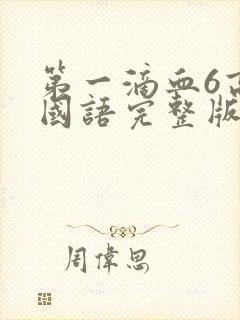 第一滴血6高
國語完整版
周偉思